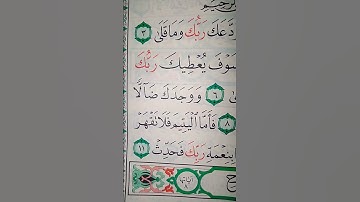 دَّعَكَ رَبُّكَ وَمَا قَلَىٰ ٣
يُعْطِيكَ رَبُّكَ
٦ وَوَجَدَكَ ضَآلًّا
٨ فَأَمَّا ٱلْيَتِيمَ فَلَا تَقْهَرْ
بِنِعْمَةِ رَبِّكَ فَحَدِّثْ ١١